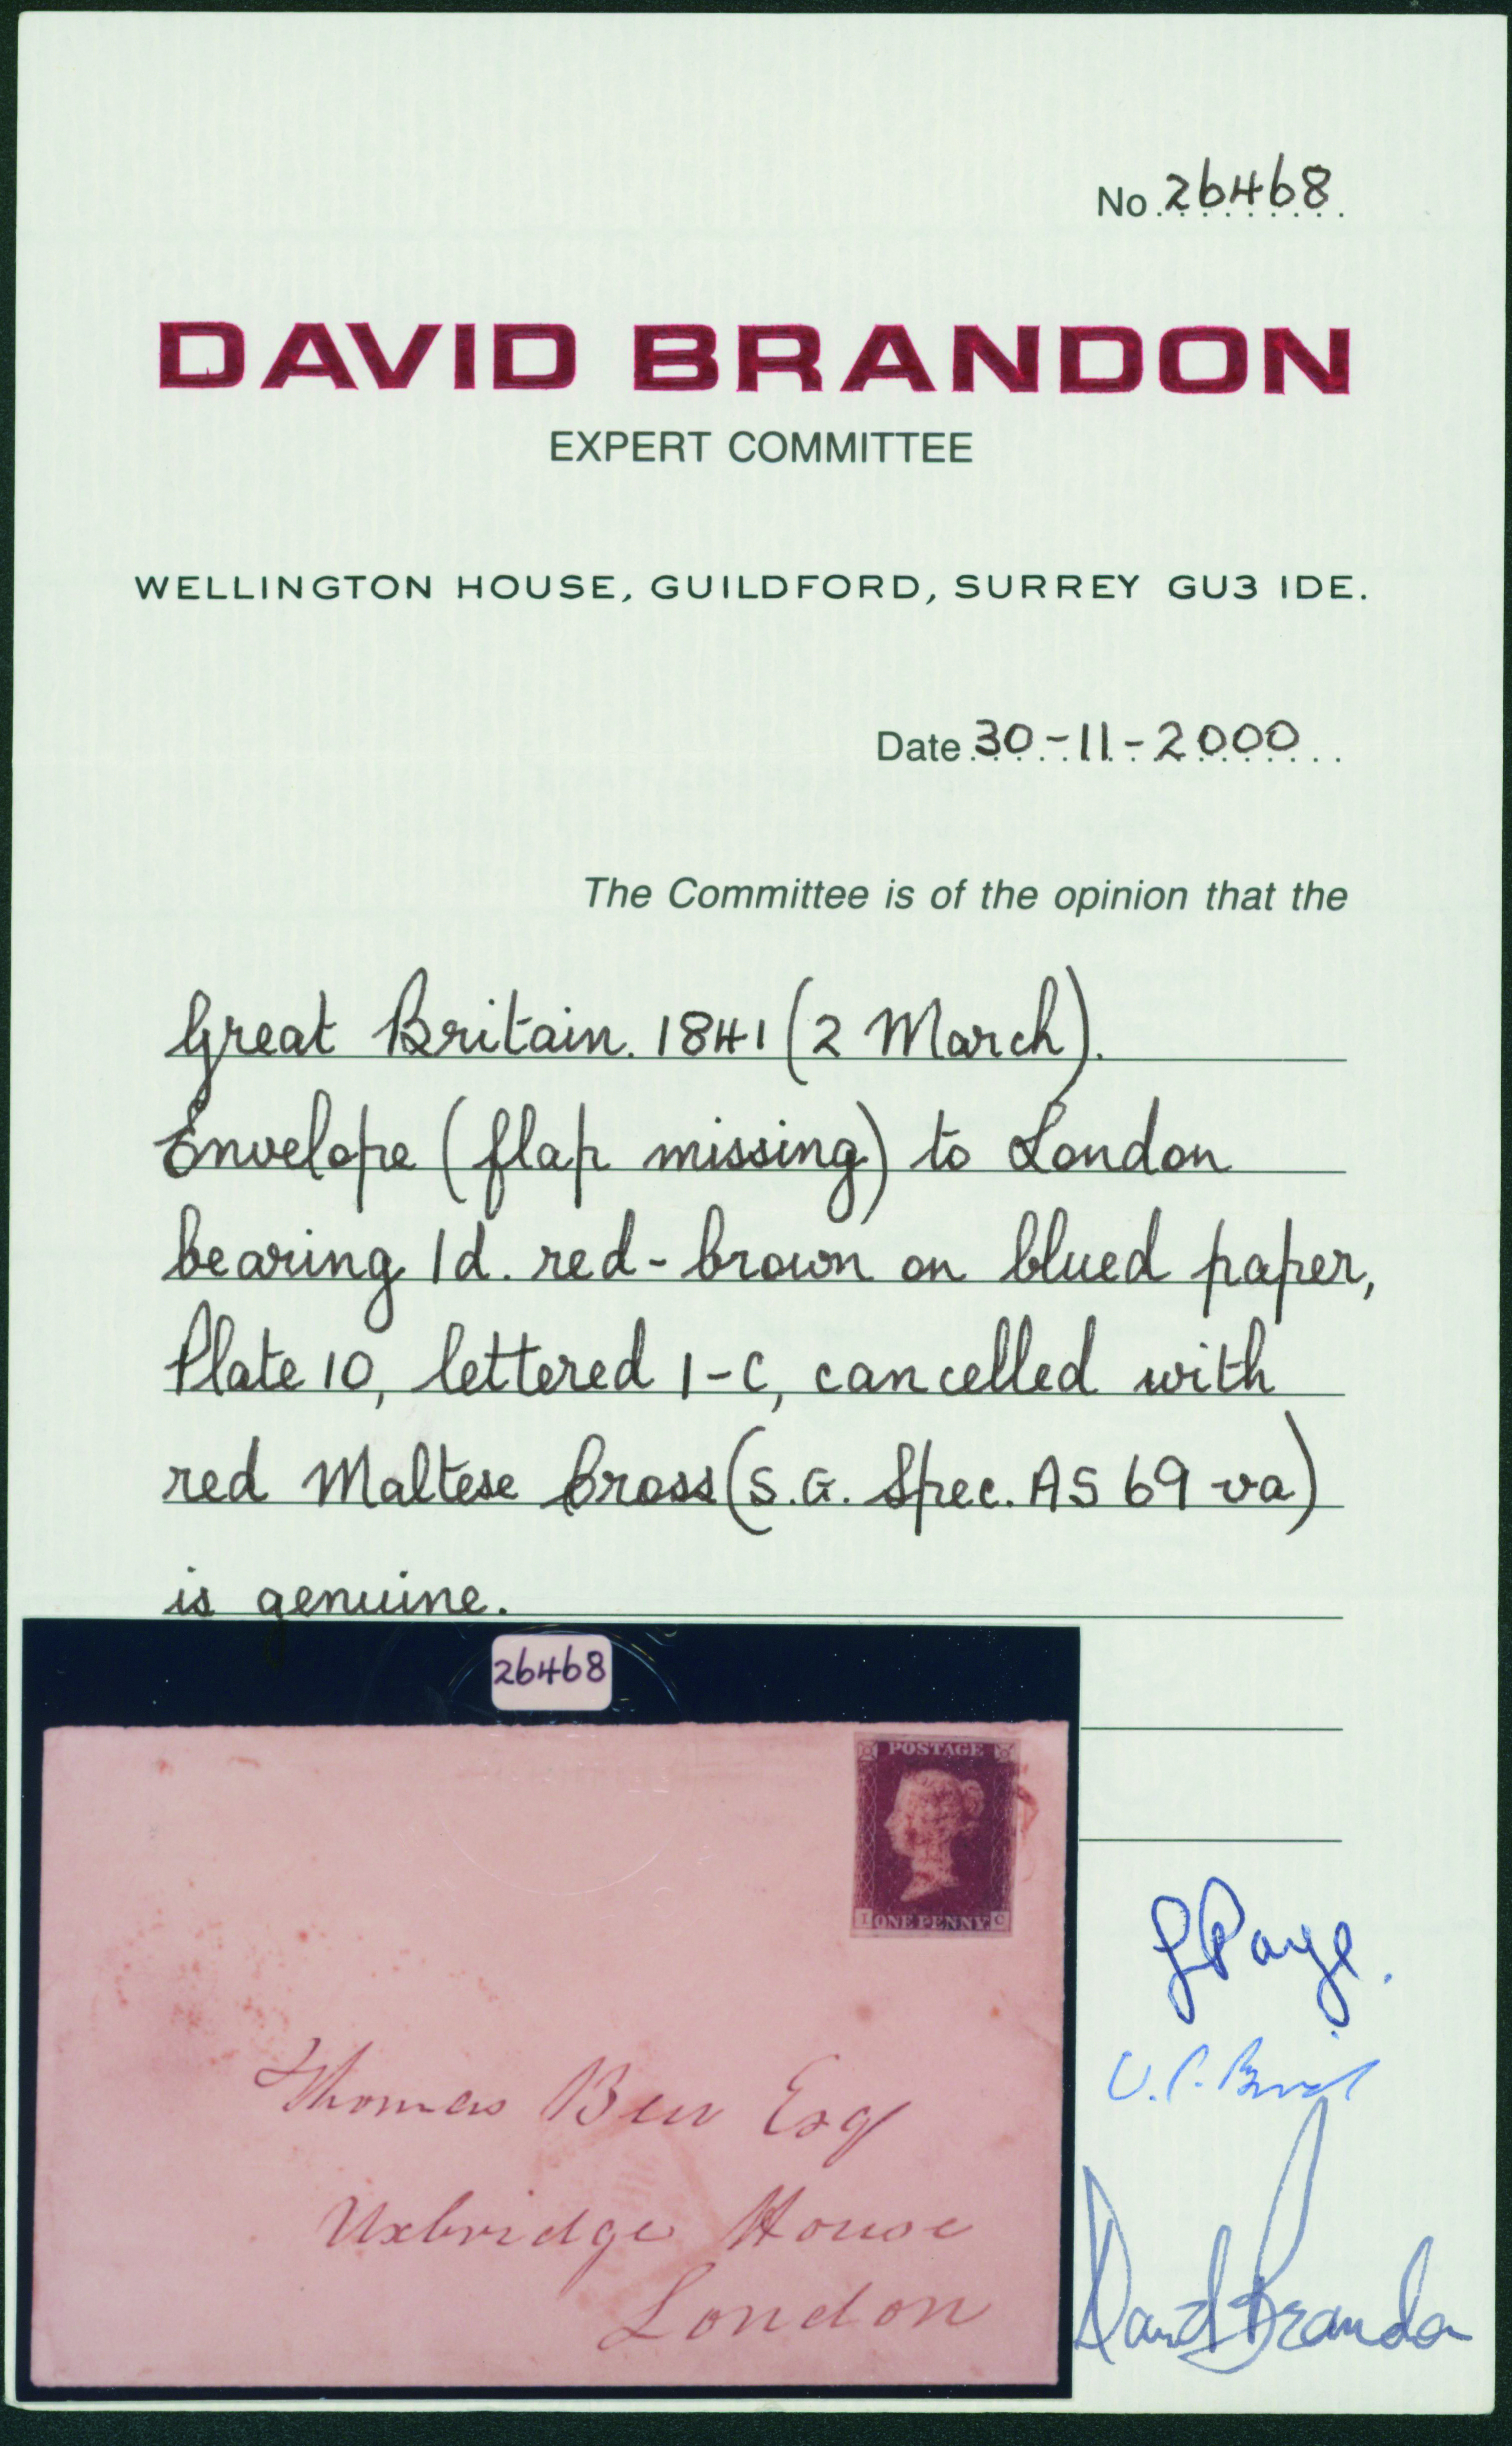 No. 26468
DAVID BRANDON
EXPERT COMMITTEE
WELLINGTON HOUSE, GUILDFORD, SURREY GU3 1DE.
Date 30-11-2000
The Committee is of the opinion that the
Great Britain. 1841 (2 March).
Envelope (flap missing) to London
bearing 1d. red-brown on blued paper,
Plate 10, lettered I-C, cancelled with
red Maltese Cross (S.G. Spec. AS 69 va)
is genuine.
26468
POSTAGE
I ONE PENNY C
Thomas Esq
Uxbridge House
London
David Brandon